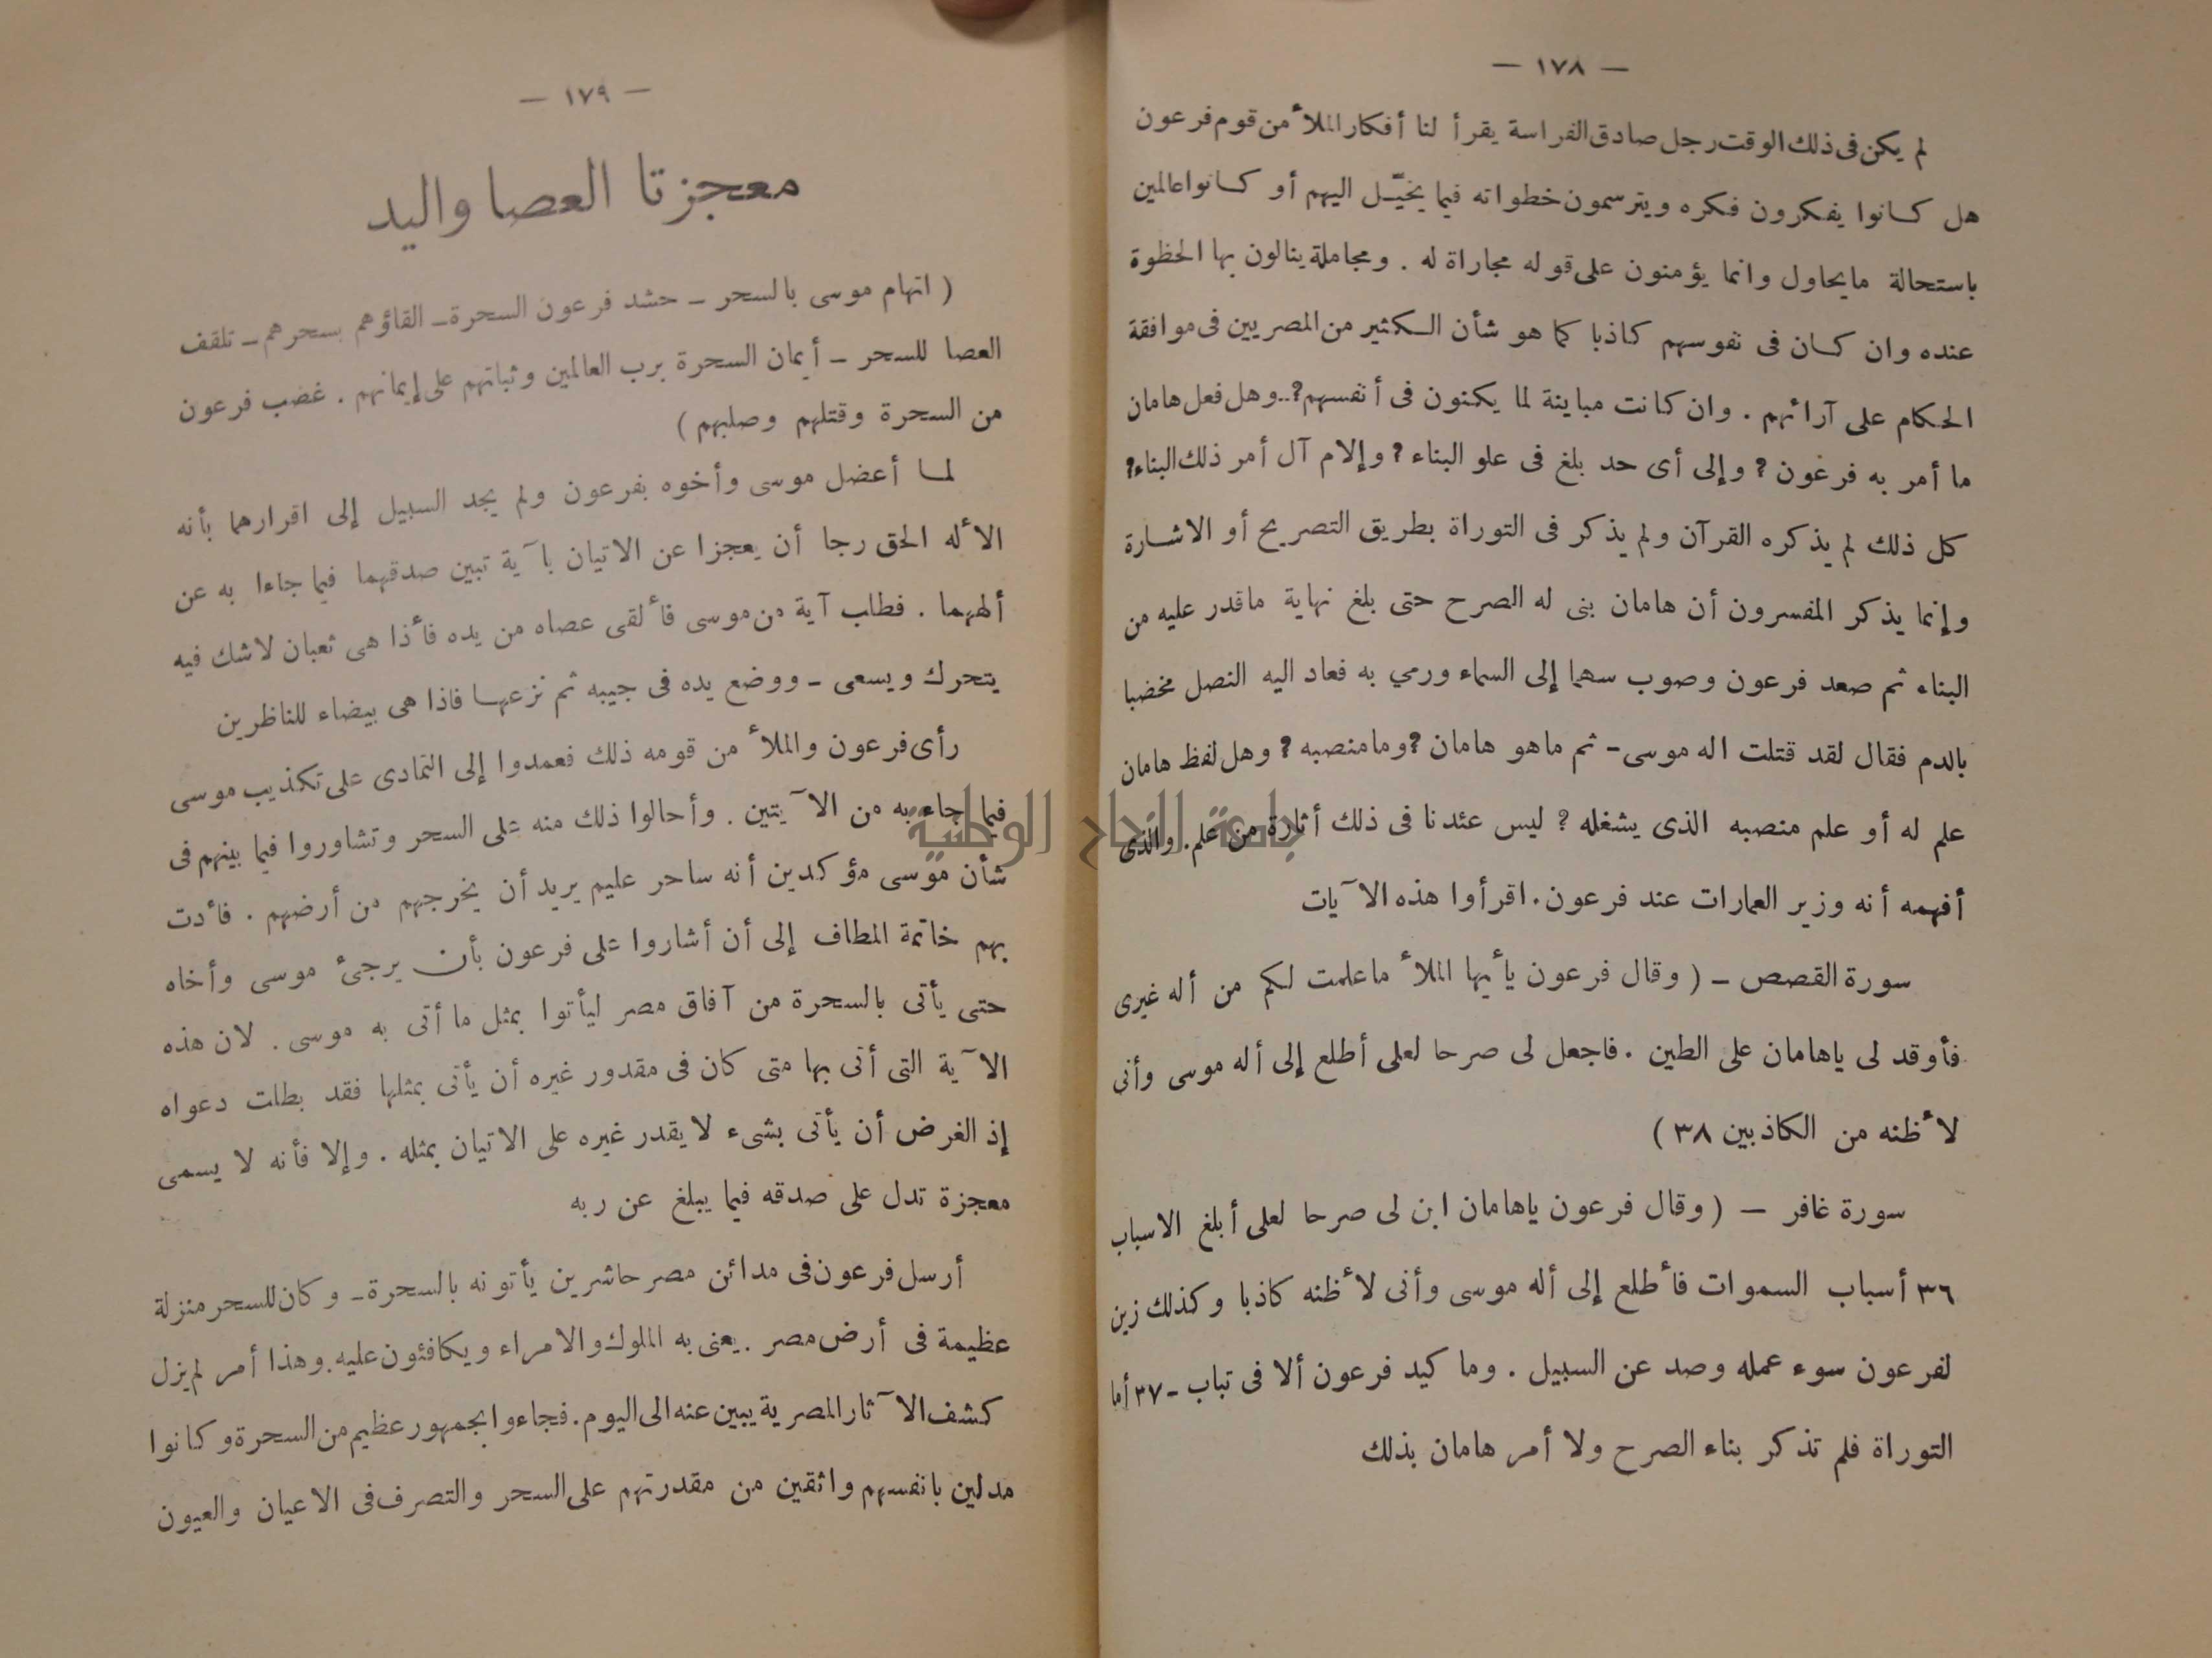 — ١٧٨ —
لم يكن فى ذلك الوقت رجل صادق الفراسة يقرأ لنا أفكار الملأ من قوم فرعون
هل كانوا يفكرون فكره ويترسمون خطواته فيما يخيّل اليهم أو كانوا عالمين
باستحالة ما يحاول وانما يؤمنون على قوله مجاراة له . ومجاملة ينالون بها الحظوة
عنده وان كان فى نفوسهم كاذبا كما هو شأن الكثير من المصريين فى موافقة
الحكام على آرائهم . وان كانت مباينة لما يكنون فى أنفسهم ؟.. وهل فعل هامان
ما أمر به فرعون ؟ وإلى أى حد بلغ فى علو البناء ؟ وإلام آل أمر ذلك البناء ؟
كل ذلك لم يذكره القرآن ولم يذكر فى التوراة بطريق التصريح أو الاشارة
وإنما يذكر المفسرون أن هامان بنى له الصرح حتى بلغ نهاية ماقدر عليه من
البناء ثم صعد فرعون وصوب سهما إلى السماء ورمي به فعاد اليه النصل مخضبا
بالدم فقال لقد قتلت اله موسى - ثم ماهو هامان ؟ وما منصبه ؟ وهل لفظ هامان
علم له أو علم منصبه الذى يشغله ؟ ليس عندنا فى ذلك أثارة من علم. والذى
أفهمه أنه وزير العمارات عند فرعون . اقرأوا هذه الآيات
سورة القصص – ( وقال فرعون يأيها الملأ ماعلمت لكم من أله غيرى
فأوقد لى ياهامان على الطين . فاجعل لى صرحا لعلى أطلع إلى أله موسى وأنى
لأظنه من الكاذبين ٣٨ )
سورة غافر — ( وقال فرعون ياهامان ابن لى صرحا لعلى أبلغ الاسباب
٣٦ أسباب السموات فأطلع إلى أله موسى وأنى لأظنه كاذبا وكذلك زين
لفرعون سوء عمله وصد عن السبيل . وما كيد فرعون ألا فى تباب - ٣٧ أما
التوراة فلم تذكر بناء الصرح ولا أمر هامان بذلك
— ١٧٩ —
معجزتا العصا واليد
( اتهام موسى بالسحر – حشد فرعون السحرة – القاؤهم بسحرهم – تلقف
العصا للسحر – أيمان السحرة برب العالمين وثباتهم على إيمانهم . غضب فرعون
من السحرة وقتلهم وصلبهم )
لما أعضل موسى وأخوه بفرعون ولم يجد السبيل إلى اقرارهما بأنه
الأله الحق رجا أن يعجزا عن الاتيان بآية تبين صدقهما فيما جاءا به عن
ألههما . فطلب آية من موسى فألقى عصاه من يده فأذا هى ثعبان لاشك فيه
يتحرك ويسعى – ووضع يده فى جيبه ثم نزعها فاذا هى بيضاء للناظرين
رأى فرعون والملأ من قومه ذلك فعمدوا إلى التمادى على تكذيب موسى
فيما جاء به من الآيتين . وأحالوا ذلك منه على السحر وتشاوروا فيما بينهم فى
شأن موسى مؤكدين أنه ساحر عليم يريد أن يخرجهم من أرضهم . فأدت
بهم خاتمة المطاف إلى أن أشاروا على فرعون بأن يرجئ موسى وأخاه
حتى يأتى بالسحرة من آفاق مصر ليأتوا بمثل ما أتى به موسى . لان هذه
الآية التى أتى بها متى كان فى مقدور غيره أن يأتى بمثلها فقد بطلت دعواه
إذ الغرض أن يأتى بشىء لا يقدر غيره على الاتيان بمثله . وإلا فأنه لا يسمى
معجزة تدل على صدقه فيما يبلغ عن ربه
أرسل فرعون فى مدائن مصر حاشرين يأتونه بالسحرة – وكان للسحر منزلة
عظيمة فى أرض مصر . يعنى به الملوك والامراء ويكافئون عليه. وهذا أمر لم يزل
كشف الآثار المصرية يبين عنه الى اليوم . فجاءوا بجمهور عظيم من السحرة وكانوا
مدلين بانفسهم واثقين من مقدرتهم على السحر والتصرف فى الاعيان والعيون
جامعة النجاح الوطنية